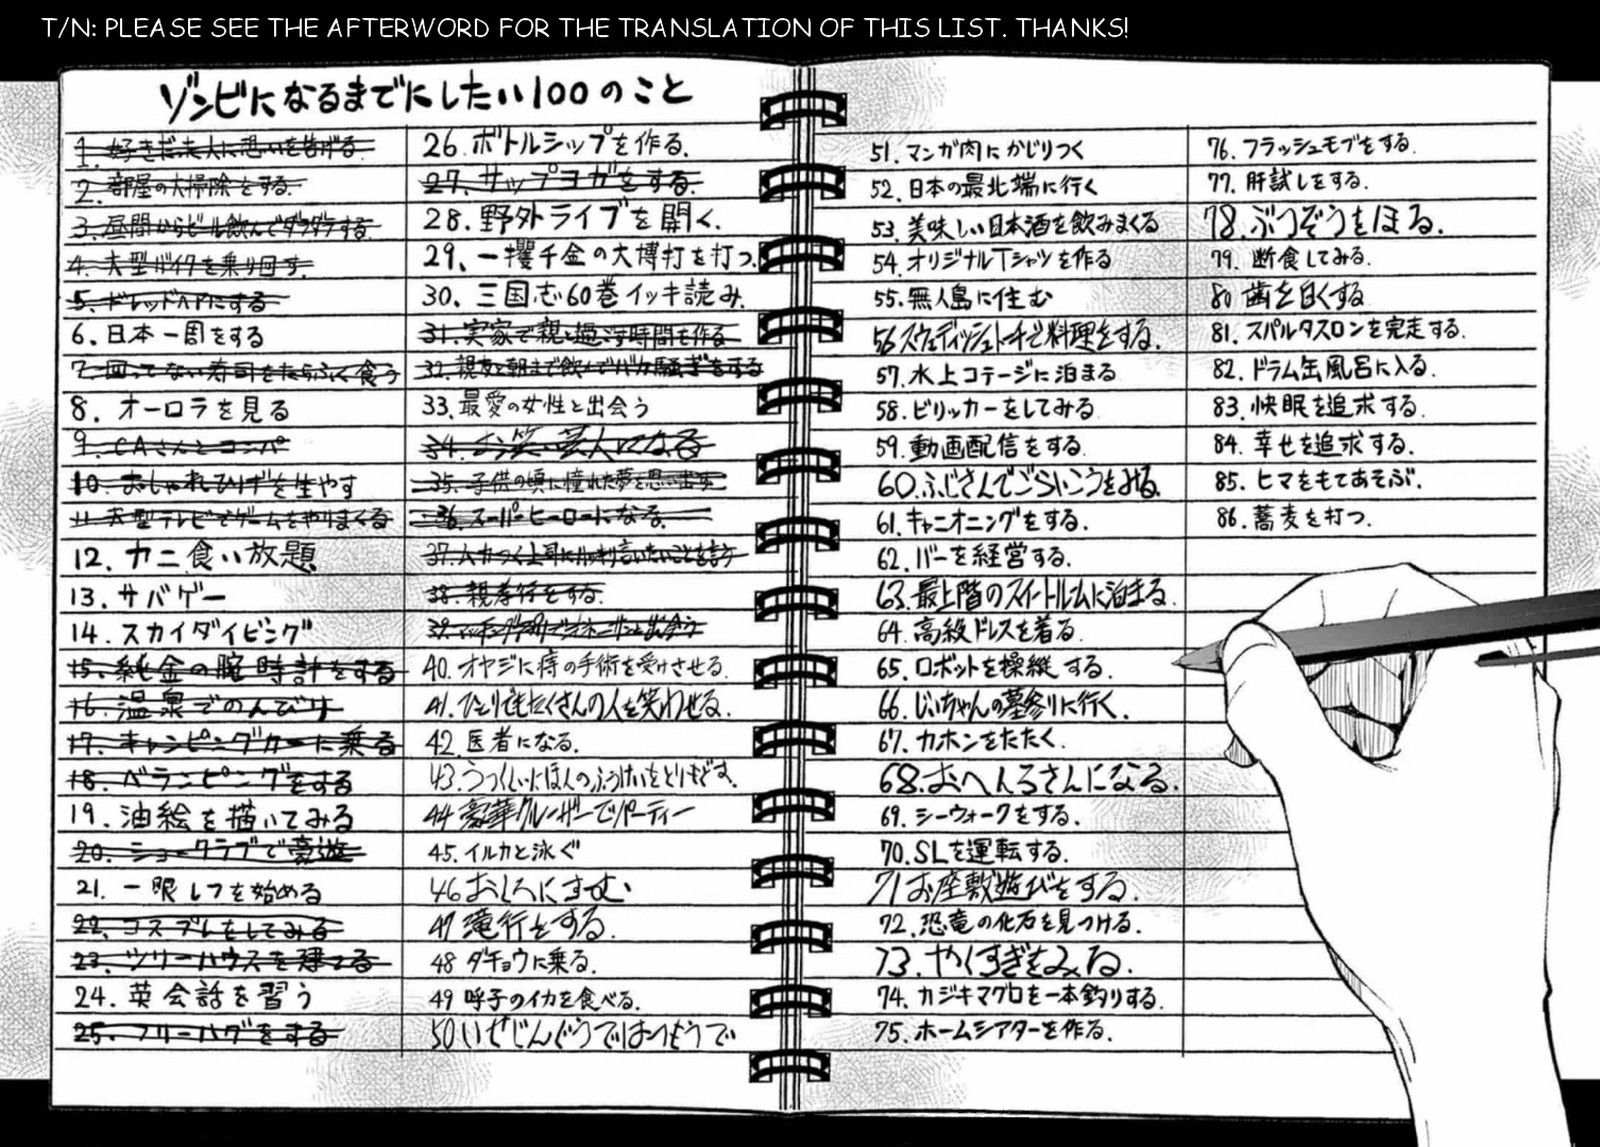 T/N: PLEASE SEE THE AFTERWORD FOR THE TRANSLATION OF THIS LIST. THANKS!
ゾンビになるまでにしたい100のこと
1. 好きだった人に思いを告げる
2. 部屋の大掃除をする.
3. 昼間からビール飲んでダラダラする.
4. 大型バイクを乗り回す.
5. ドレッドヘアにする
6. 日本一周をする
7. 回ってない寿司をたらふく食う
8. オーロラを見る
9. CAさんとコンパ
10. おしゃれひげを生やす
11. 大型テレビでゲームをやりまくる
12. カニ食い放題
13. サバゲー
14. スカイダイビング
15. 純金の腕時計をする
16. 温泉でのんびり
17. キャンピングカーに乗る
18. ベランピングをする
19. 油絵を描いてみる
20. ショークラブで豪遊
21. 一眼レフを始める
22. コスプレをしてみる
23. ツリーハウスを建てる
24. 英会話を習う
25. フリーハグをする
26. ボトルシップを作る.
27. サップヨガをする.
28. 野外ライブを開く.
29. 一攫千金の大博打を打つ.
30. 三国志60巻イッキ読み.
31. 実家で親と過ごす時間を作る
32. 親友と朝まで飲んでバカ騒ぎをする
33. 最愛の女性と出会う
34. お笑い芸人になる
35. 子供の頃に憧れた夢を思い出す
36. スーパーヒーローになる.
37. ムカつく上司にハッキリ言いたいことを言う
38. 親孝行をする.
39. マッチングアプリでオネーサンと出会う
40. オヤジに痔の手術を受けさせる.
41. ひとりでもたくさんの人を笑わせる.
42. 医者になる.
43. うつくしいにほんのふうけいをとりもどす.
44 豪華クルーザーでパーティー
45. イルカと泳ぐ
46 おしろにすむ
47 滝行をする.
48 ダチョウに乗る.
49 呼子のイカを食べる.
50 いせじんぐうではつもうで
51. マンガ肉にかじりつく
52. 日本の最北端に行く
53. 美味しい日本酒を飲みまくる
54. オリジナルTシャツを作る
55. 無人島に住む
56 スウェディッシュトーチで料理をする.
57. 水上コテージに泊まる
58. ビリッカーをしてみる
59. 動画配信をする.
60. ふじさんでごらいこうをみる.
61. キャニオニングをする.
62. バーを経営する.
63. 最上階のスイートルームに泊まる.
64. 高級ドレスを着る.
65. ロボットを操縦する.
66. じいちゃんの墓参りに行く.
67. カホンをたたく.
68. おへんろさんになる.
69. シーウォークをする.
70. SLを運転する.
71 お座敷遊びをする.
72. 恐竜の化石を見つける.
73. やくすぎをみる.
74. カジキマグロを一本釣りする.
75. ホームシアターを作る.
76. フラッシュモブをする.
77. 肝試しをする.
78. ぶつぞうをほる.
79. 断食してみる.
80 歯を白くする
81. スパルタスロンを完走する.
82. ドラム缶風呂に入る.
83. 快眠を追求する.
84. 幸せを追求する.
85. ヒマをもてあそぶ.
86. 蕎麦を打つ.